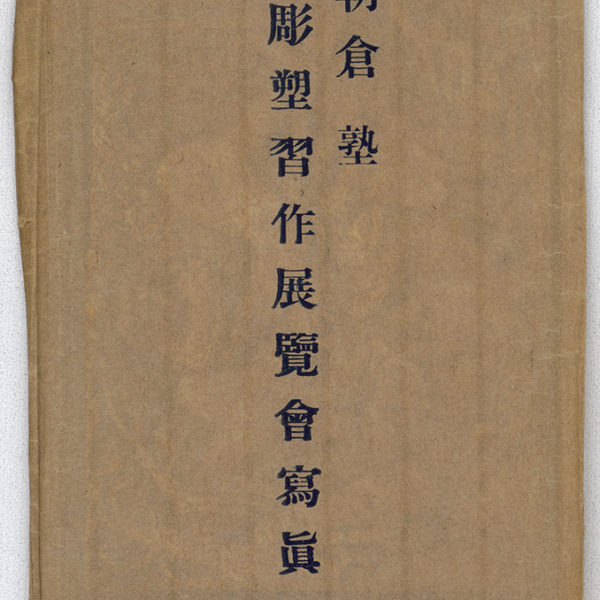 朝倉塾
彫塑習作展覽會寫眞